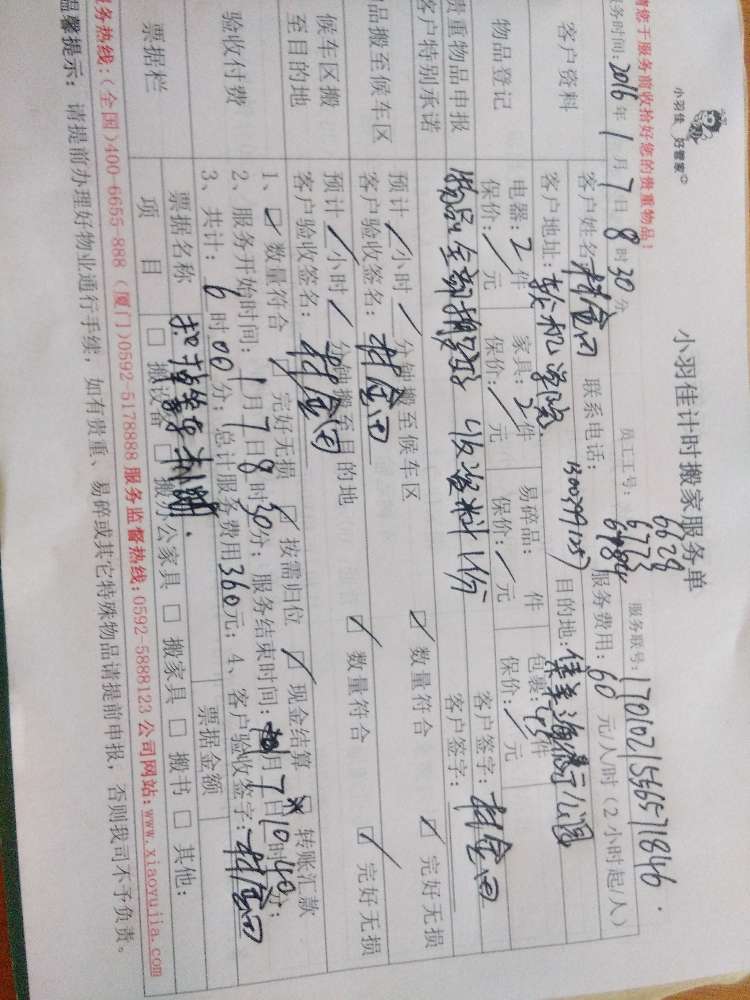 小羽佳 好管家
小羽佳计时搬家服务单
员工工号: 6629 6773 6784
服务联号: 1701021556571846
请您于服务前收拾好您的贵重物品!
服务时间: 2016年1月7日8时30分
服务费用: 60元/人/时(2小时起/人)
客户资料
客户姓名:
联系电话:
客户地址:
目的地:
物品登记
电器: 2件 家具: 2件 易碎品: 件 包裹: 件
保价: / 元 保价: / 元 保价: / 元 保价: / 元
贵重物品申报
客户特别承诺
物品全部搬完好 收资料1份
客户签字:
物品搬至候车区
预计 / 小时 / 分钟搬至候车区 ☑ 数量符合 ☑ 完好无损
客户验收签名:
候车区搬至目的地
预计 / 小时 / 分钟搬至目的地 ☑ 数量符合 ☑ 完好无损
客户验收签名:
验收付费
1、☑ 数量符合 ☑ 完好无损 ☑ 按需归位 ☑ 现金结算 转账汇款
2、服务开始时间: 1月7日8时30分; 服务结束时间: 月7日10时40分;
3、共计: 6时00分; 总计服务费用360元; 4、客户验收签字:
票据栏
票据名称 票据金额
项目 □ 搬设备 □ 搬办公家具 □ 搬家具 □ 搬书 □ 其他:
服务热线:(全国)400-6655-888 (厦门)0592-5178888 服务监督热线:0592-5888123 公司网站:www.xiaoyujia.com
温馨提示: 请提前办理好物业通行手续, 如有贵重、易碎或其它特殊物品请提前申报, 否则我司不予负责。